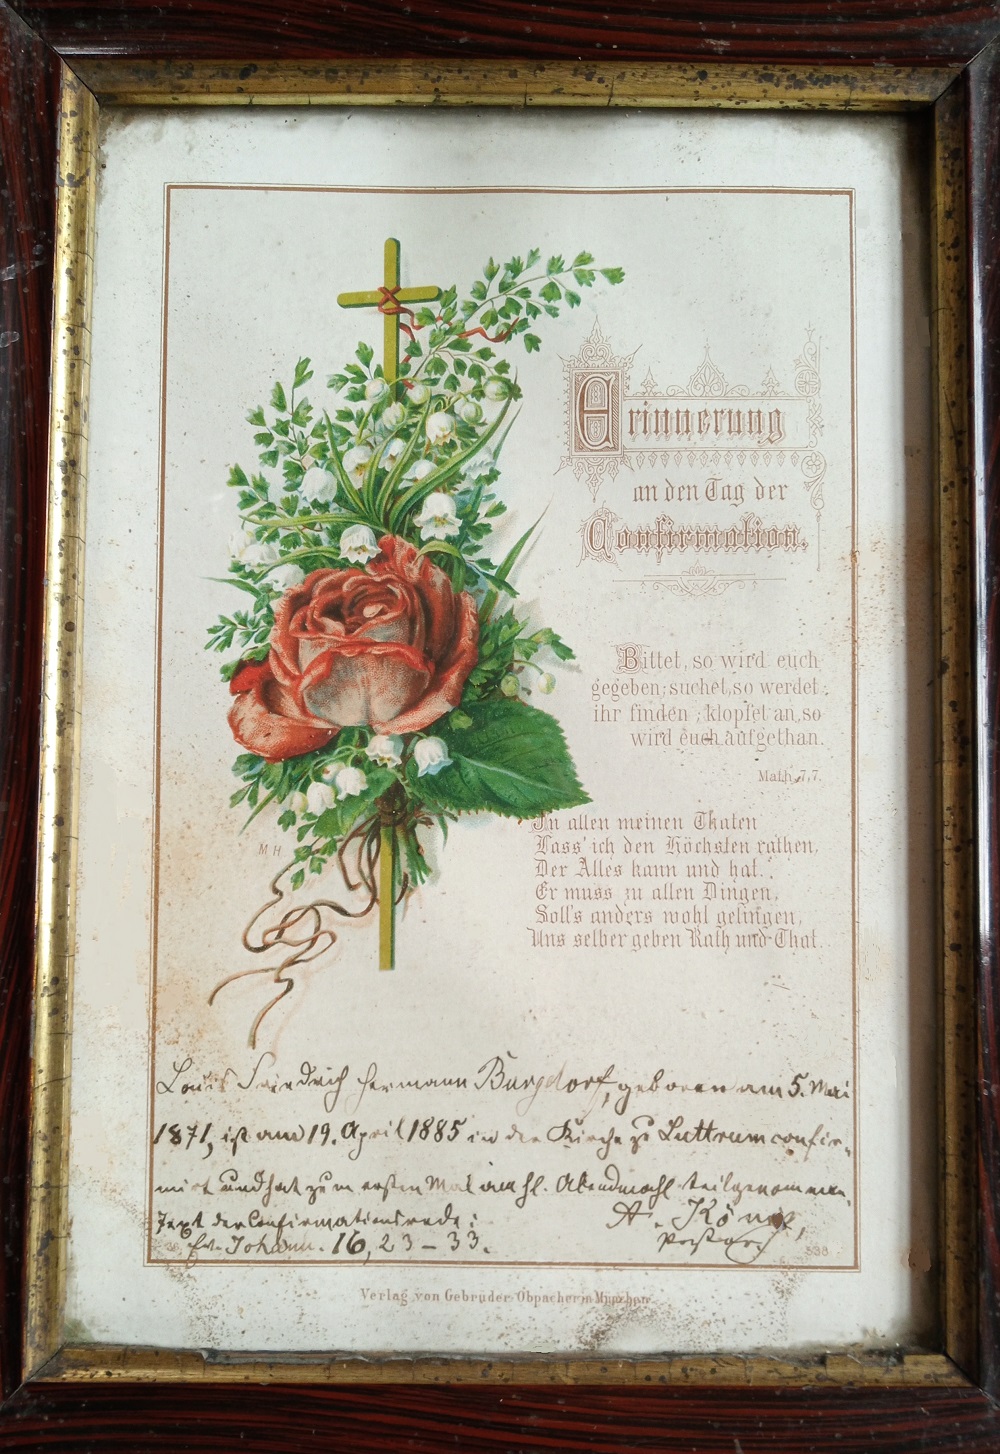 Erinnerung
an den Tag der
Confirmation.
Bittet, so wird euch
gegeben; suchet, so werdet
ihr finden; klopfet an, so
wird euch aufgethan.
Math. 7,7.
In allen meinen Thaten
Lass' ich den Höchsten rathen,
Der Alles kann und hat.
Er muss zu allen Dingen,
Soll's anders wohl gelingen,
Uns selber geben Rath und That.
M H
Louis Friedrich Hermann Burgdorf, geboren am 5. Mai
1871, ist am 19. April 1885 in der Kirche zu Luttrum confir-
mirt und hat zum ersten Mal am hl. Abendmahl teilgenommen.
Text der Confirmationsrede:
Ev. Johann. 16, 23 – 33.
A. König,
Pastor
Verlag von Gebrüder Obpacher in München